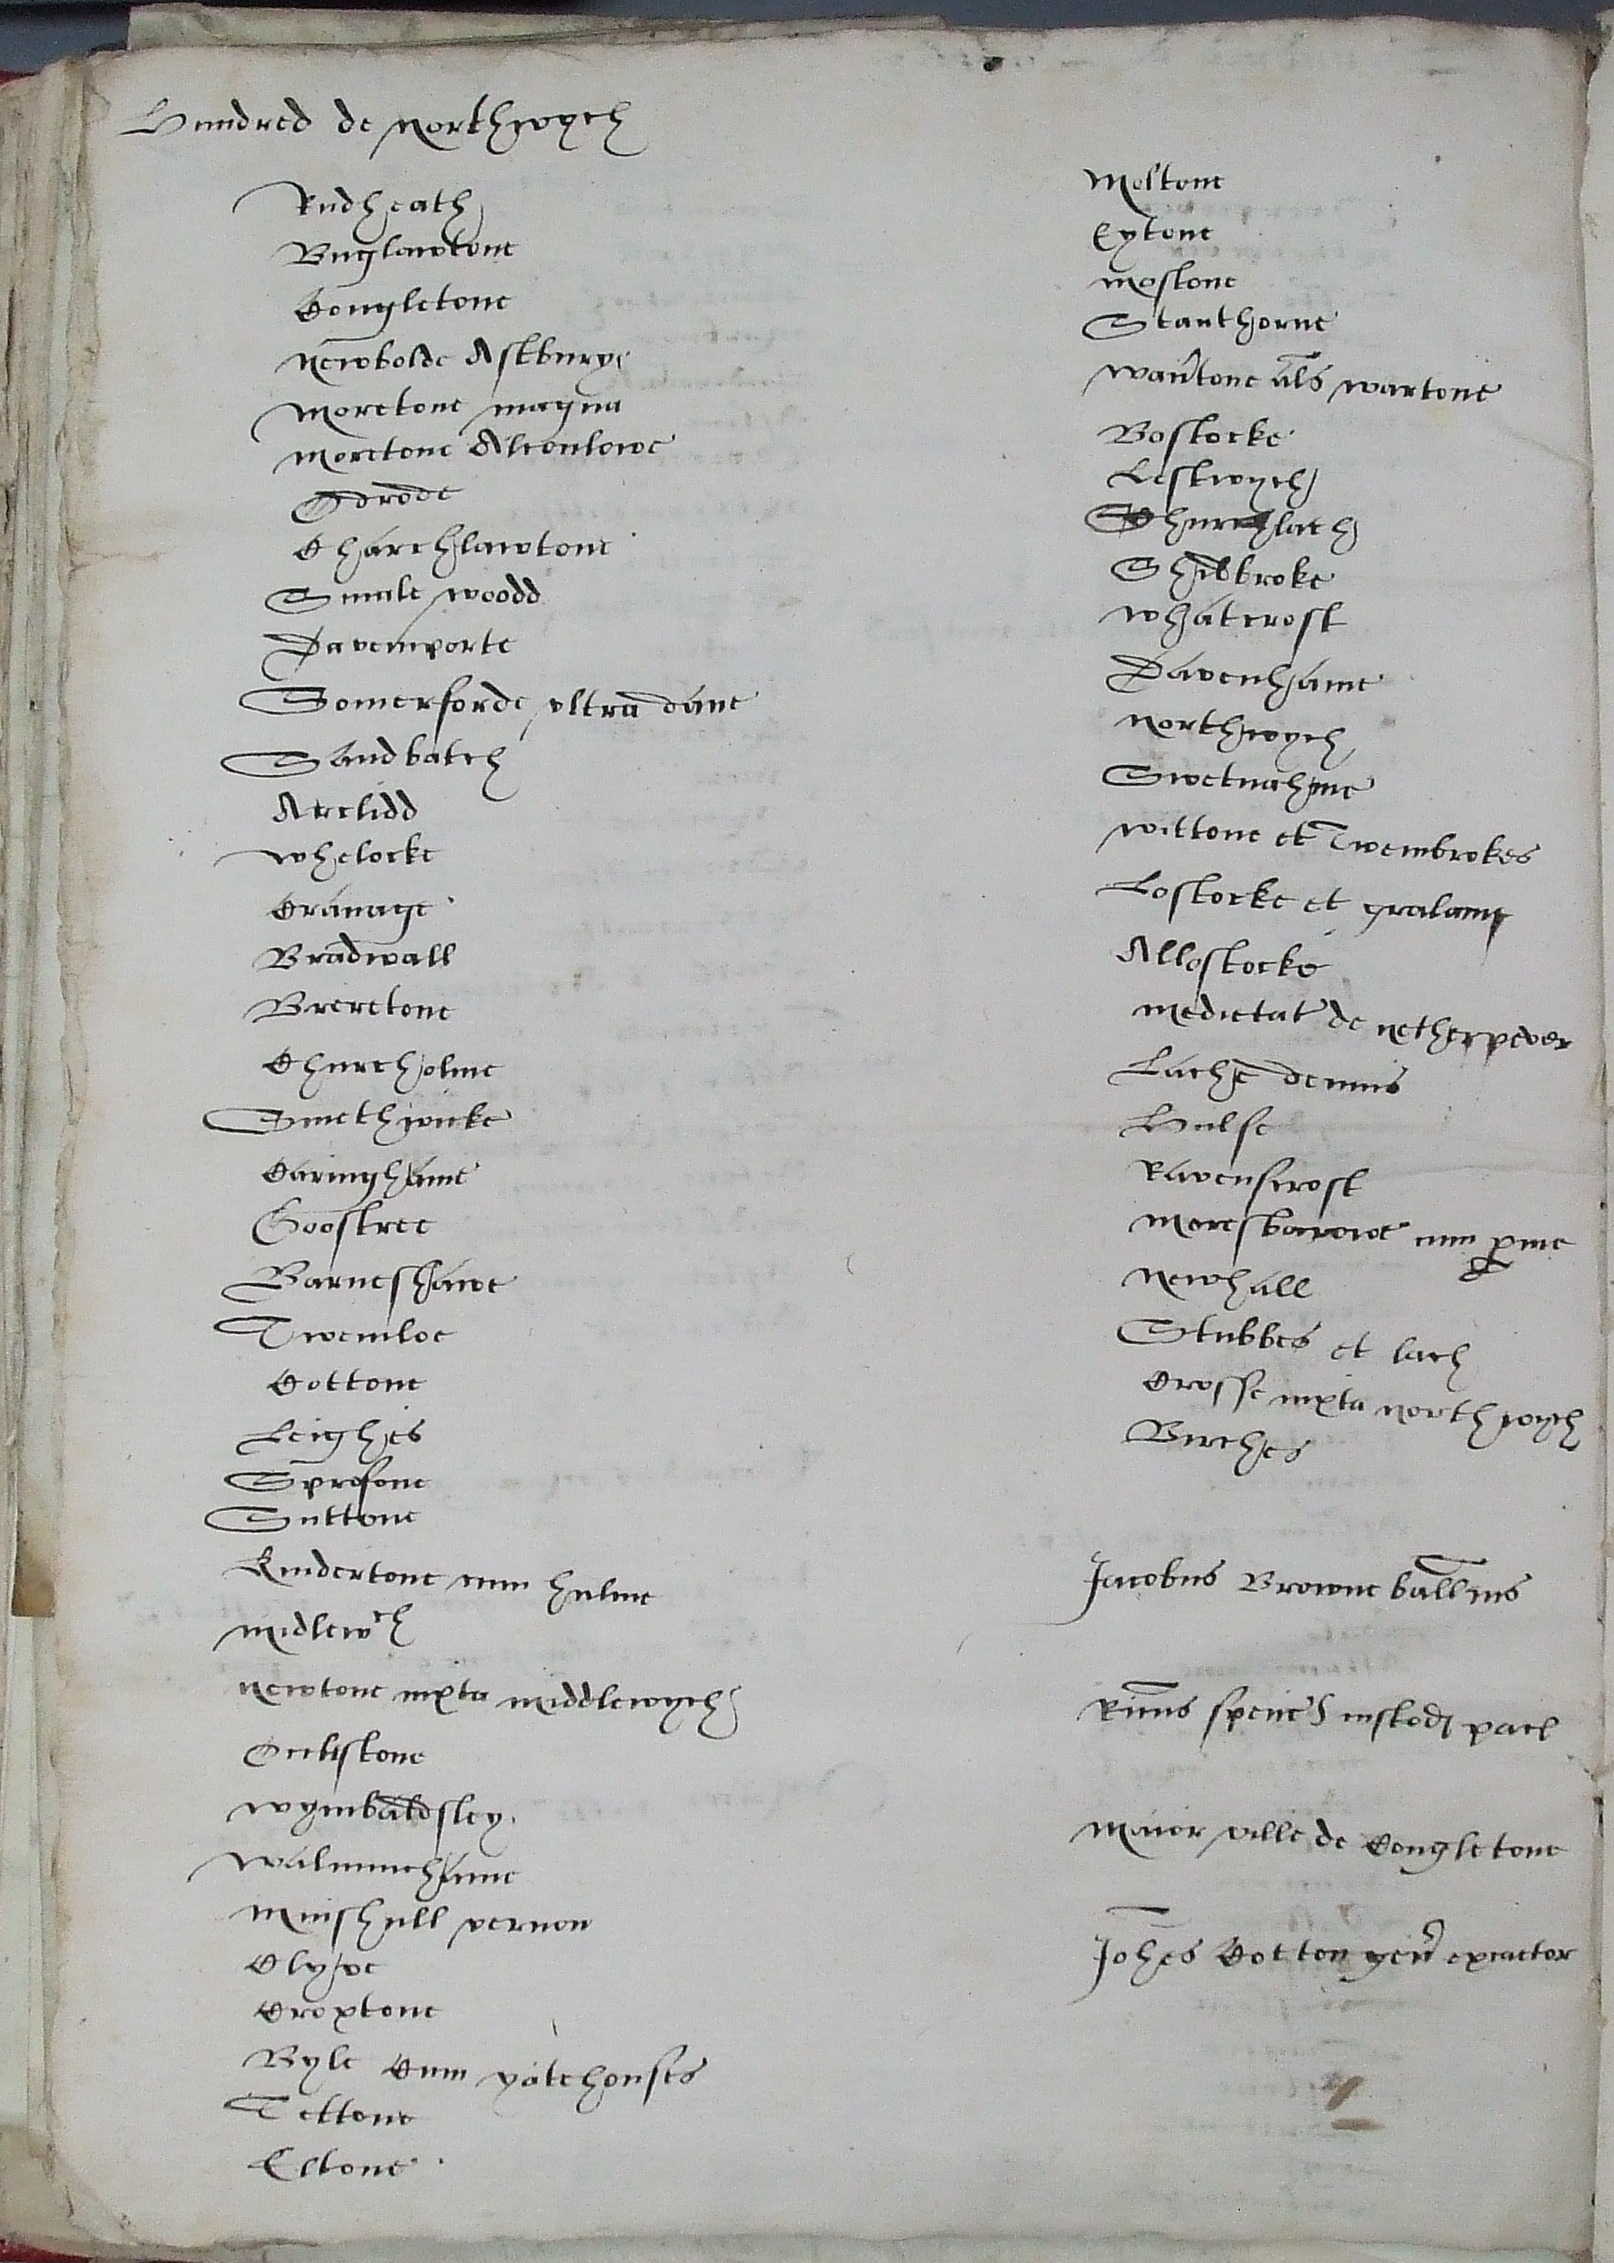 Hundred de Northwych
Rudheath
Buglawtone
Congletone
Newbolde Astbury
Moretone magna
Moretone Alconlowe
Odrode
Charchlawtone
Smale woodd
Davemporte
Somerforde ultra dane
Sandbatch
Arclidd
Whelocke
Cranage
Bradwall
Breretone
Churcholme
Smethwicke
Caringhame
Goostree
Barneshawe
Twemloe
Cottone
Leighes
Sprostone
Suttone
Kindertone cum hulme
Midlewch
Newtone iuxta middlewych
Occlistone
Wymbaldsley
Walminchame
Minshull vernon
Clyve
Croxtone
Byle Cum yatehouses
Tettone
Eltone
Moltone
Eytone
Mostone
Stanthorne
Wantone als wartone
Bostocke
Leftwych
Shurlach
Shibbroke
Whatcroft
Davenhame
Northwych
Swetnahme
Wittone et Twembrokes
Lostocke et gralam
Allostocke
Medietat de netherpever
Lache dennis
Hulse
Ravenscroft
Moresbarowe cum pme
Newhall
Stubbes et lach
Crosse iuxta northwych
Birches
Jacobus Browne ballius
Ricus spenc custod pacl
Maior ville de Congletone
Johes Cotton gen exactor